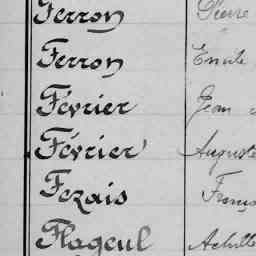 Ferron Pierre
Ferron Emile
Février Jean
Février Auguste
Fezais
Flageul Achille